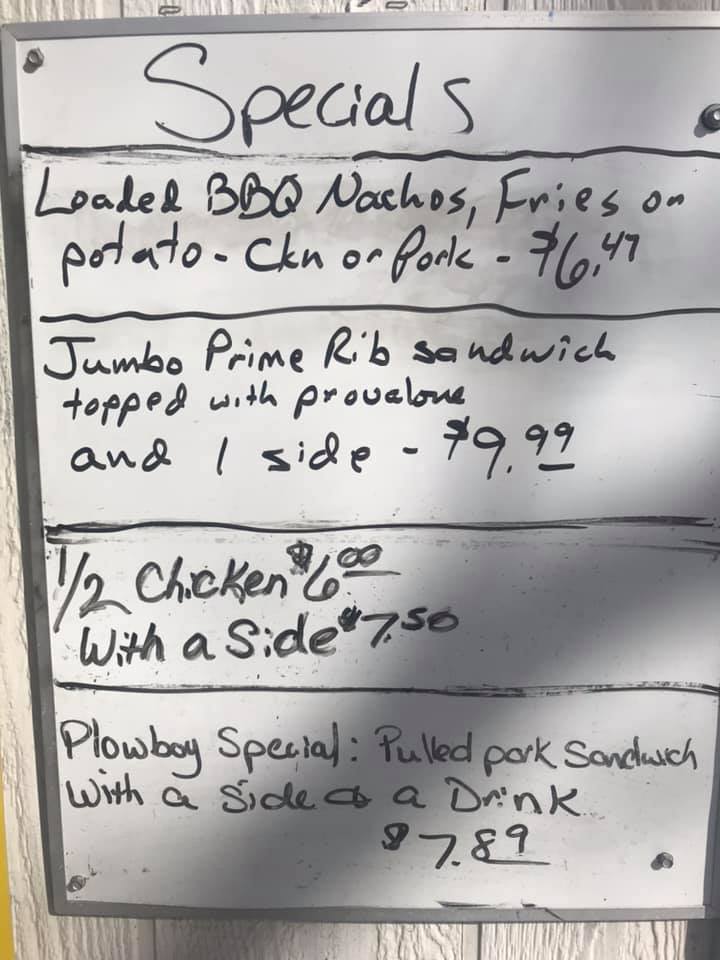 Specials
Loaded BBQ Nachos, Fries or
potato - Ckn or Pork - $6.47
Jumbo Prime Rib sandwich
topped with provalone
and 1 side - $9.99
1/2 Chicken $6.00
With a Side $7.50
Plowboy Special: Pulled pork Sandwich
With a Side & a Drink
$7.89